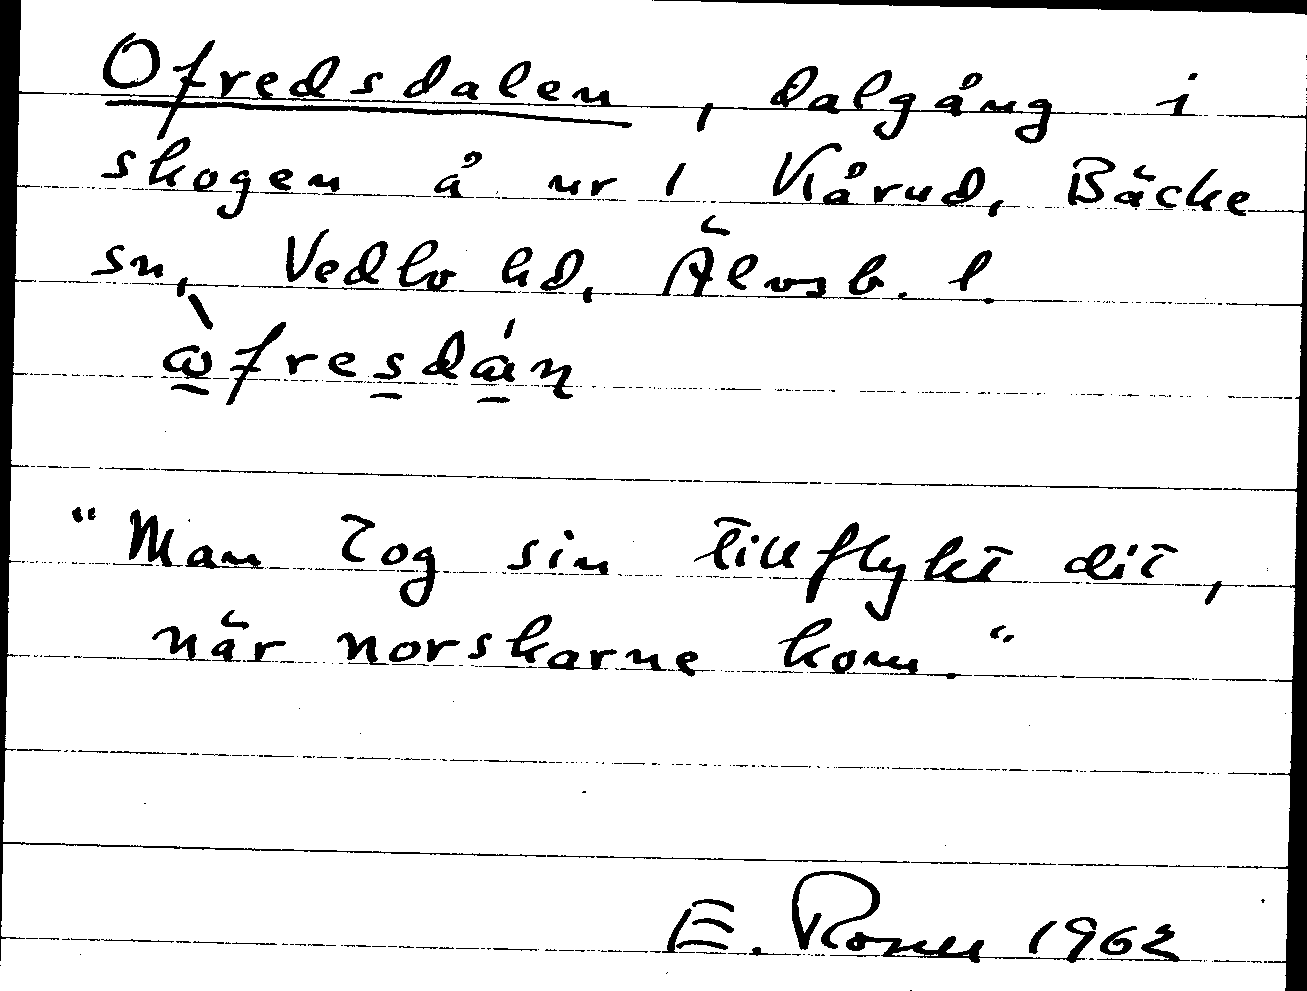 Ofredsdalen, dalgång i
skogen å nr 1 Kårud, Bäcke
sn, Vedbo hd, Älvsb. l.
"Man tog sin tillflykt dit,
när norskarne kom."
E. 1962